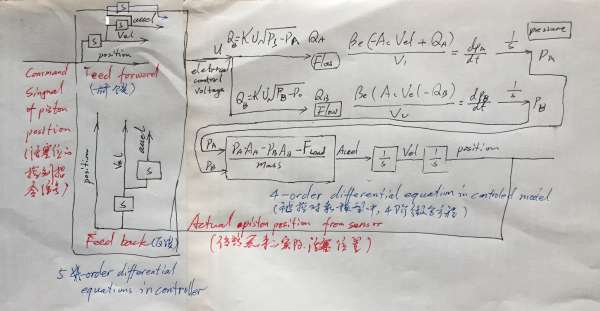 s
s
accel
Val
s
position
Feed forward
(前馈)
Command
Singnal
of piston
position
(活塞位
控制指
令信号)
position
Val
accel
s
s
Feed back (反馈)
5 order differential
equations in controller
U
eletrical
control
Voltage
Q_A=KU√P_S-P_A Q_A
Flow
Be(-Ac Vel + Q_A)
V₁
= dp_A
dt
1
s
P_A
pressure
Q_B=KU√P_B-P₀ Q_B
Flow
Be(Ac Vel - Q_B)
= dp_B
dt
1
s
P_B
P_A
P_B
P_A A_A - P_B A_B - F_Load
mass
Accel
1
s
Val
1
s
position
4-order differential equation in controled model
(被控对象模型中,4阶微分方程)
Actual position from sensor
活塞位置)